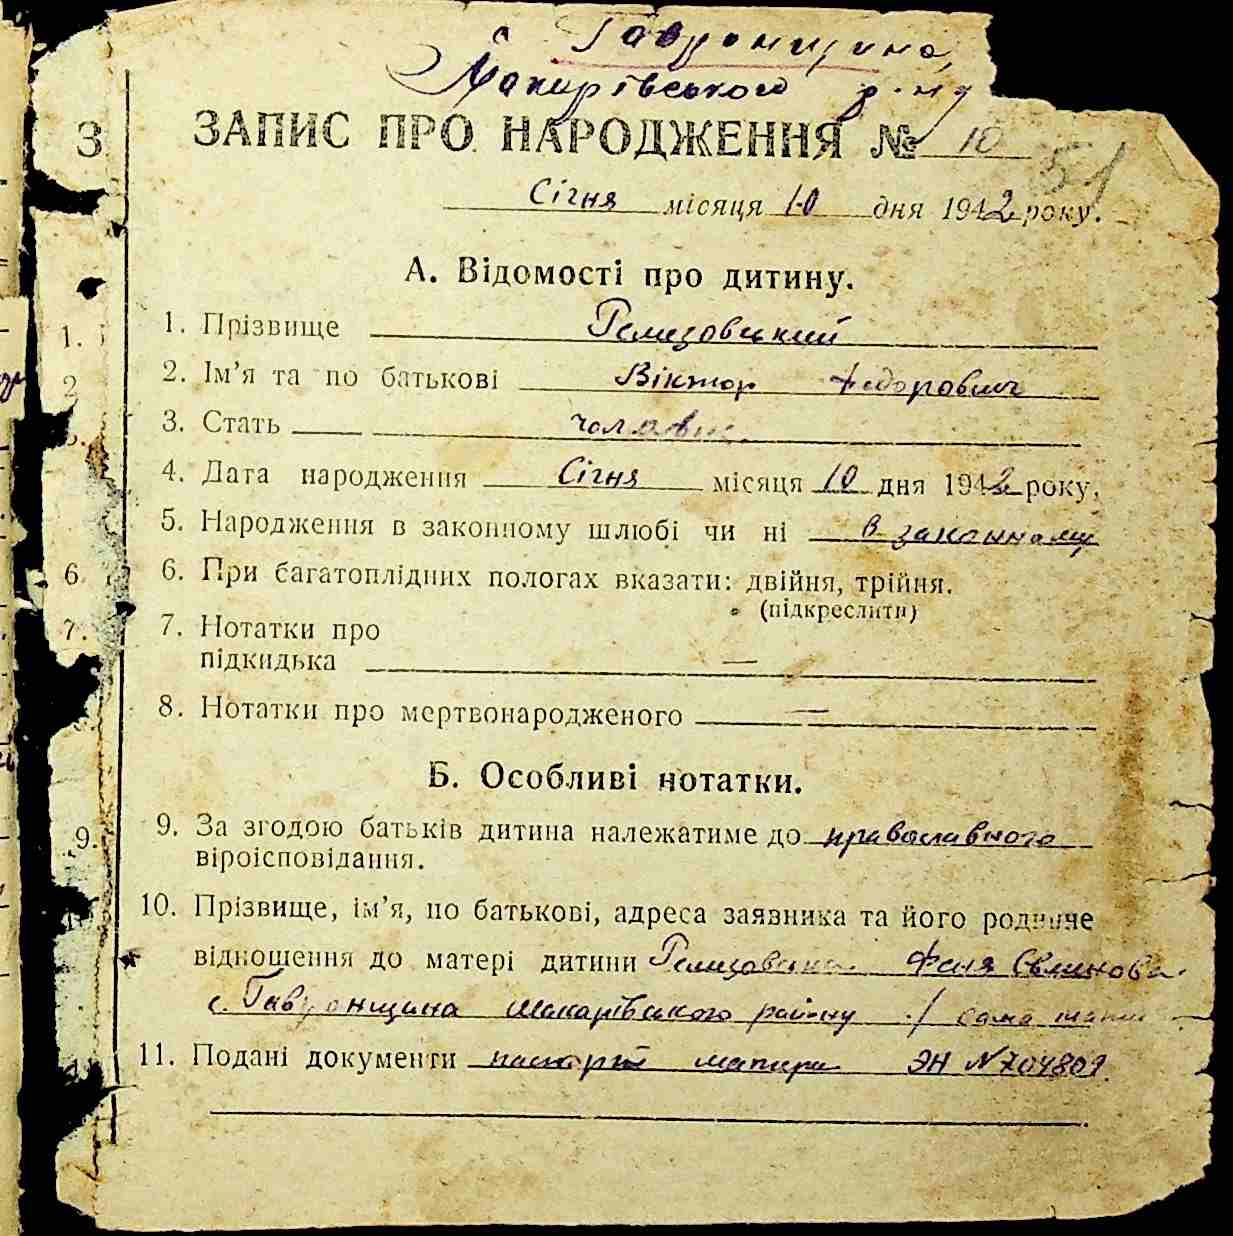 с. Гавронщина,
Макарівського р-ну
ЗАПИС ПРО НАРОДЖЕННЯ № 10
51
Січня місяця 10 дня 1942 року.
А. Відомості про дитину.
1. Прізвище Ремезовський
2. Ім’я та по батькові Віктор Федорович
3. Стать чоловіч.
4. Дата народження Січня місяця 10 дня 1942 року.
5. Народження в законному шлюбі чи ні в законному
6. При багатоплідних пологах вказати: двійня, трійня.
(підкреслити)
7. Нотатки про
підкидька —
8. Нотатки про мертвонародженого —
Б. Особливі нотатки.
9. За згодою батьків дитина належатиме до православного
віроісповідання.
10. Прізвище, ім’я, по батькові, адреса заявника та його родинне
відношення до матері дитини Феня
с. Гавронщина Макарівського району / сама мати
11. Подані документи паспорт матери ЭН № 704809